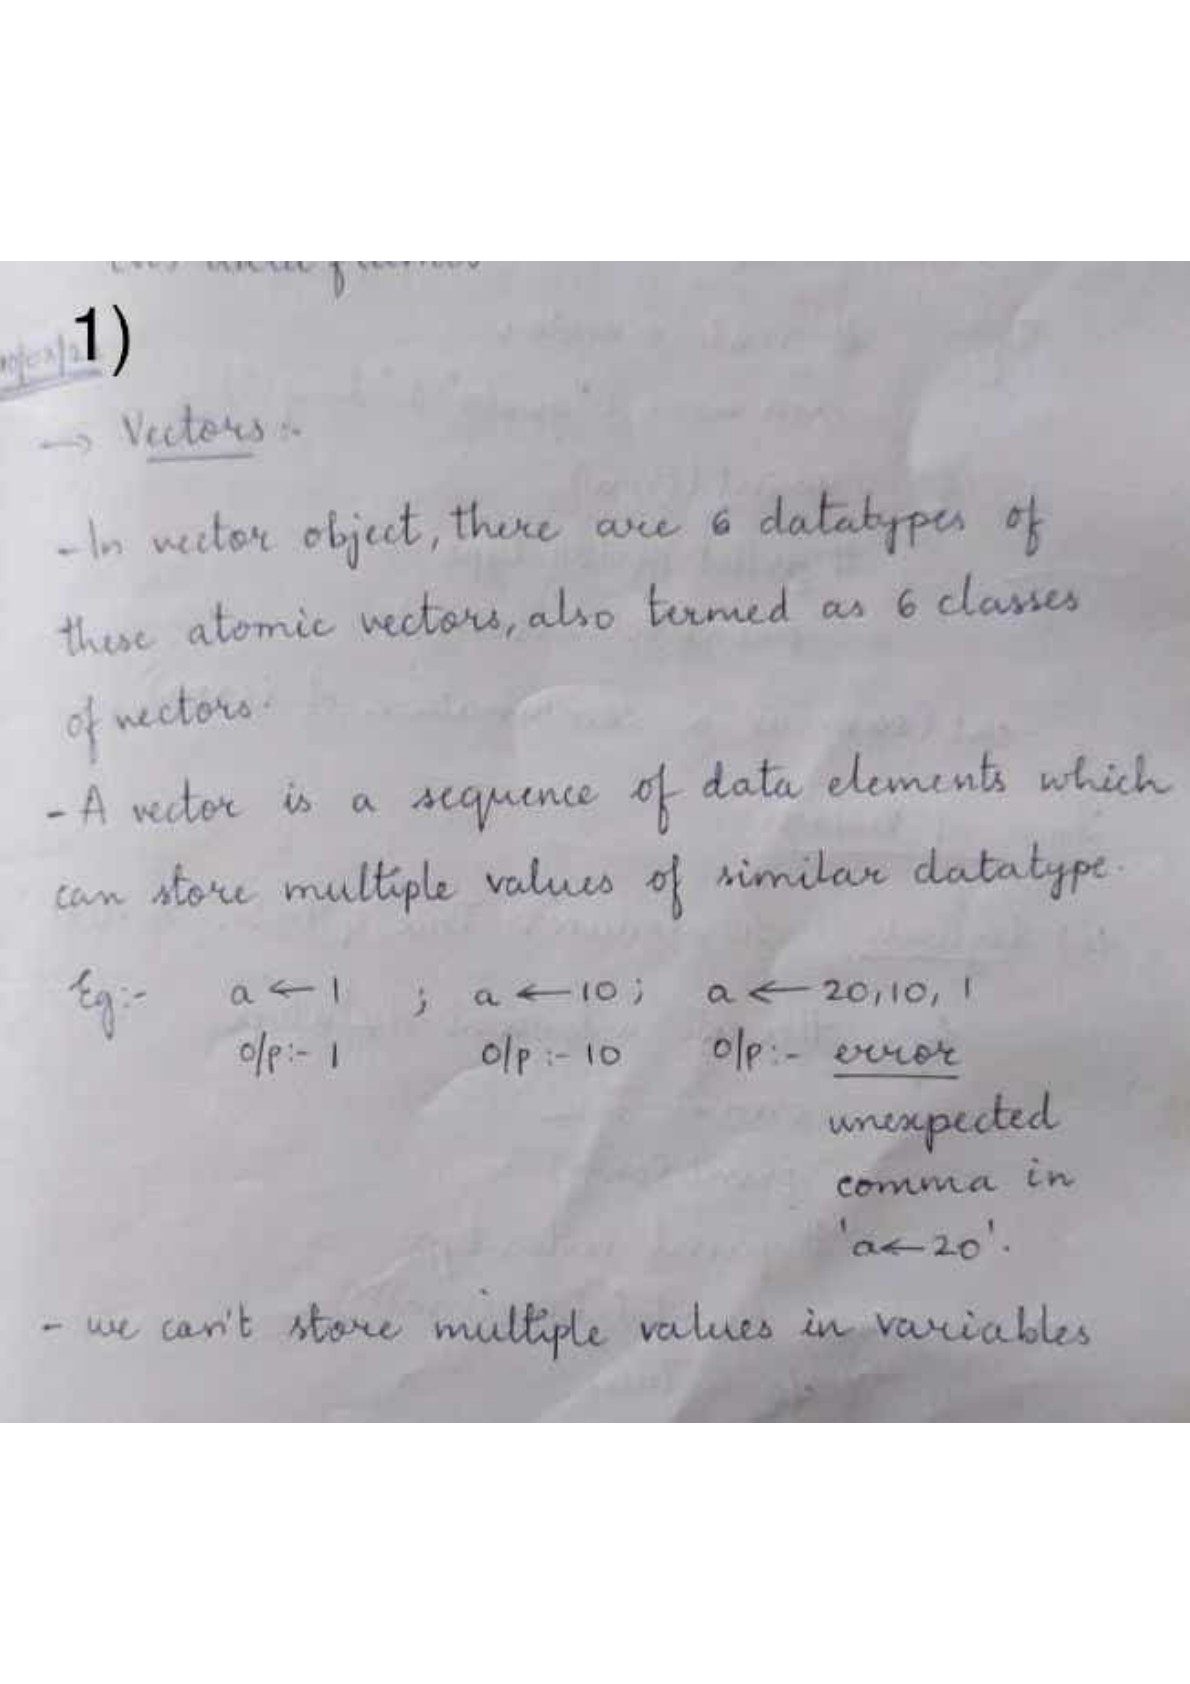 1)
→ Vectors :-
- In vector object, there are 6 datatypes of
these atomic vectors, also termed as 6 classes
of vectors.
- A vector is a sequence of data elements which
can store multiple values of similar datatype.
Eg:- a ← 1 ; a ← 10 ; a ← 20, 10, 1
o/p:- 1 o/p :- 10 o/p :- error
unexpected
comma in
'a ← 20'.
- we can't store multiple values in variables